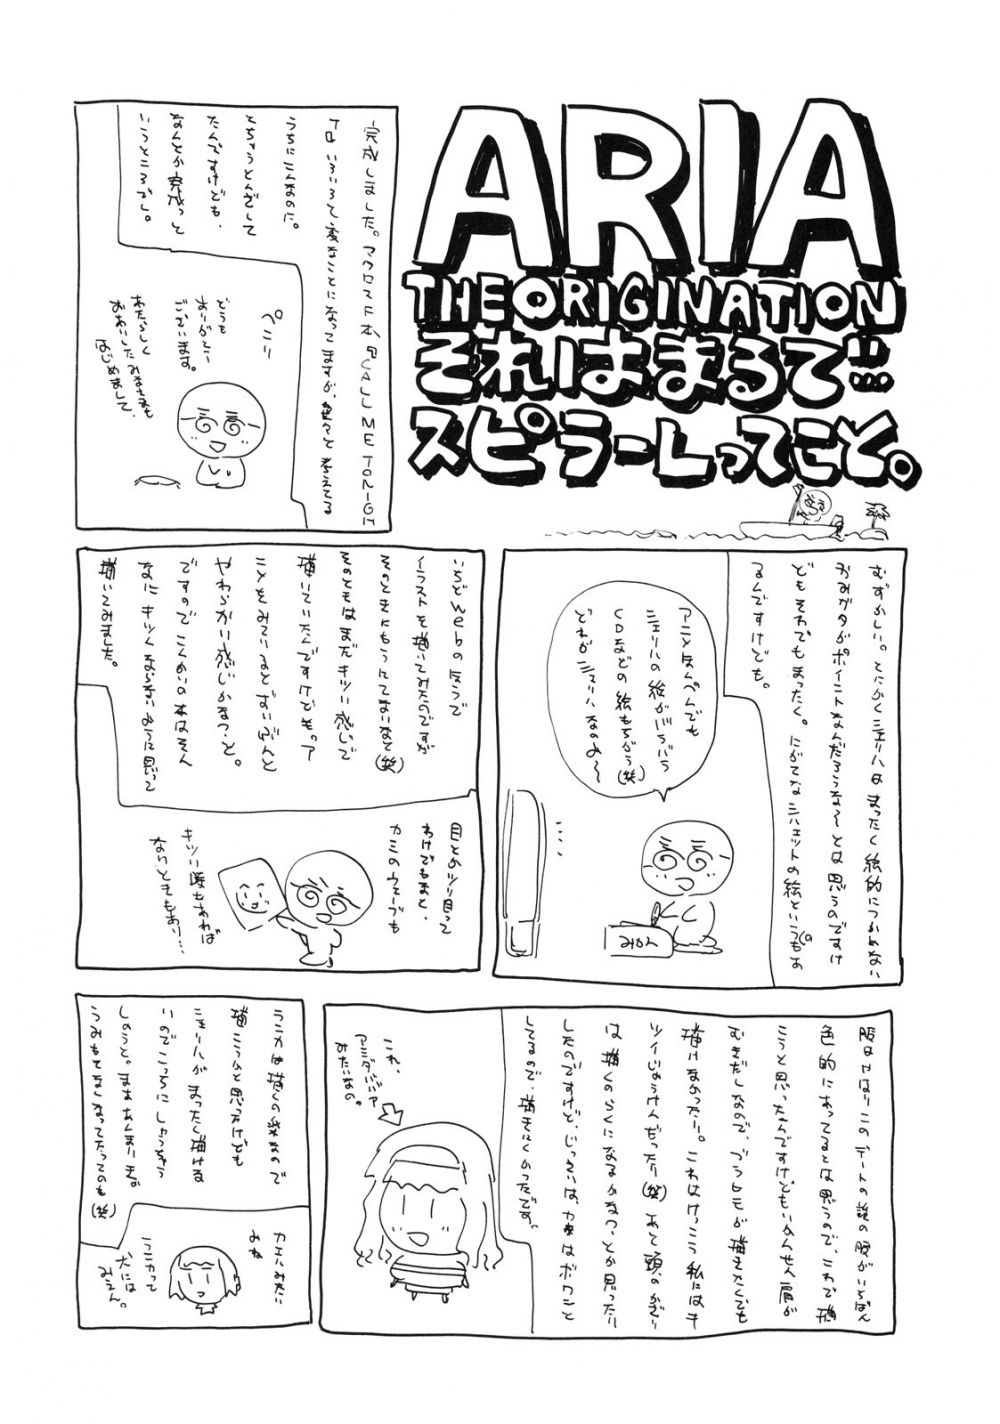 ARIA
THE ORIGINATION
それはまるで…
スピラールってこと。
完成しました。マクロスF本『CALL ME TONIGH
T』いろいろと変なことになってますが、色々と考えてる
うちにこんなのに。
とちゅうとんざして
たんですけども、
なんとか完成っと
いうところでし。
ぺこり
どうも
ありがとー
ございます。
はじめまして、
むずかしい。とにかくシェリルはまったく絵的につかめない
おみがタがポイントなんだろうな〜とは思うのですけ
どもそれでもまったく。にがてなシルエットの絵というのもあ
るんですけども。
アニメ気んぺんでも
シェリルの絵がバラバラ
CDなどの絵もちがう(笑)
どれがシェリルなのよ〜
みかん
いちどwebの方うで
イラストを描いてみたのですが
そのときにもうにてないなと(笑)
そのときはまだキツい感じで
描いていたんですけどもっア
ことをみているとずいぶんと
やわらかい感じかなっ、と。
ですのでこんかいの本はそん
なにキツくならないように思って
描いてみました。
目とかツリ目って
わけでもなく、
カミのウェーブも
キツい時もあれば
ないときもあり…
服はやはりこのデートの説の服がいちばん
色的にあってるとは思うので、これで描
こうと思ったんですけどもいかんせん肩が
むきだしなので、ブラヒモが描きたくても
描けなかったり。これはけっこう私にはキ
ツイじょうけんだったり(笑)あと頭のかざり
は描くのらくになるかなっ、とか思ったり
したのですけど、じっさいは、カオはボワこと
してるので、描きにくかったです。
これ、
アミダババア
みたいなの。
ランカは描くの楽なので
描こうかと思ったけども
シェリルがまったく描ける
いのでこっちにしゃっちゃう
しのうと。まああんまりまざ
うみもとなくなってたってのも(笑)
カエルみたい
よね
ランカって
犬には
みえん。